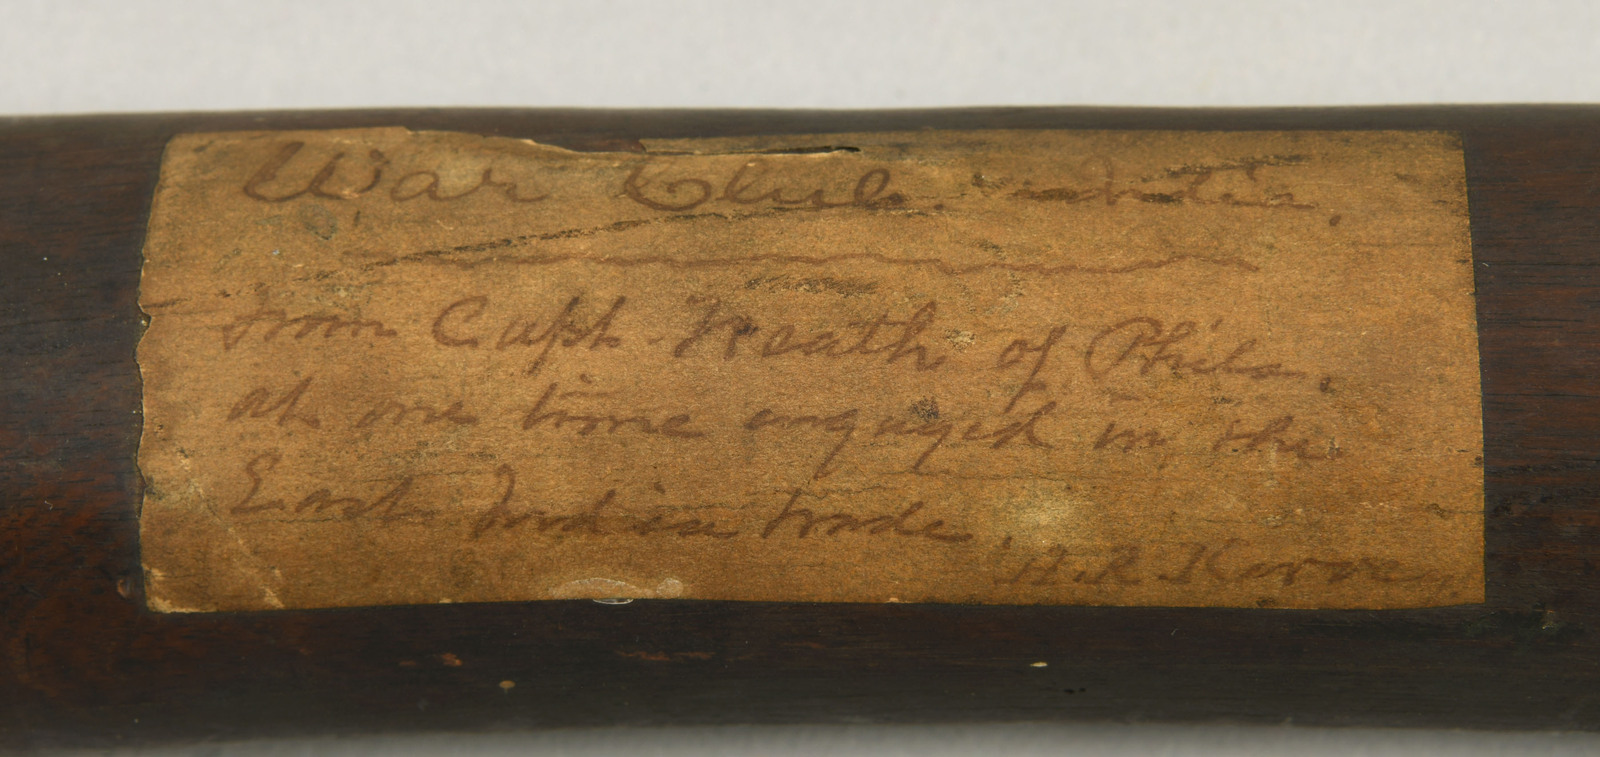 War Club. India,
from Capt. Heath of Phila,
at one time engaged in the
East India trade,
H. R.